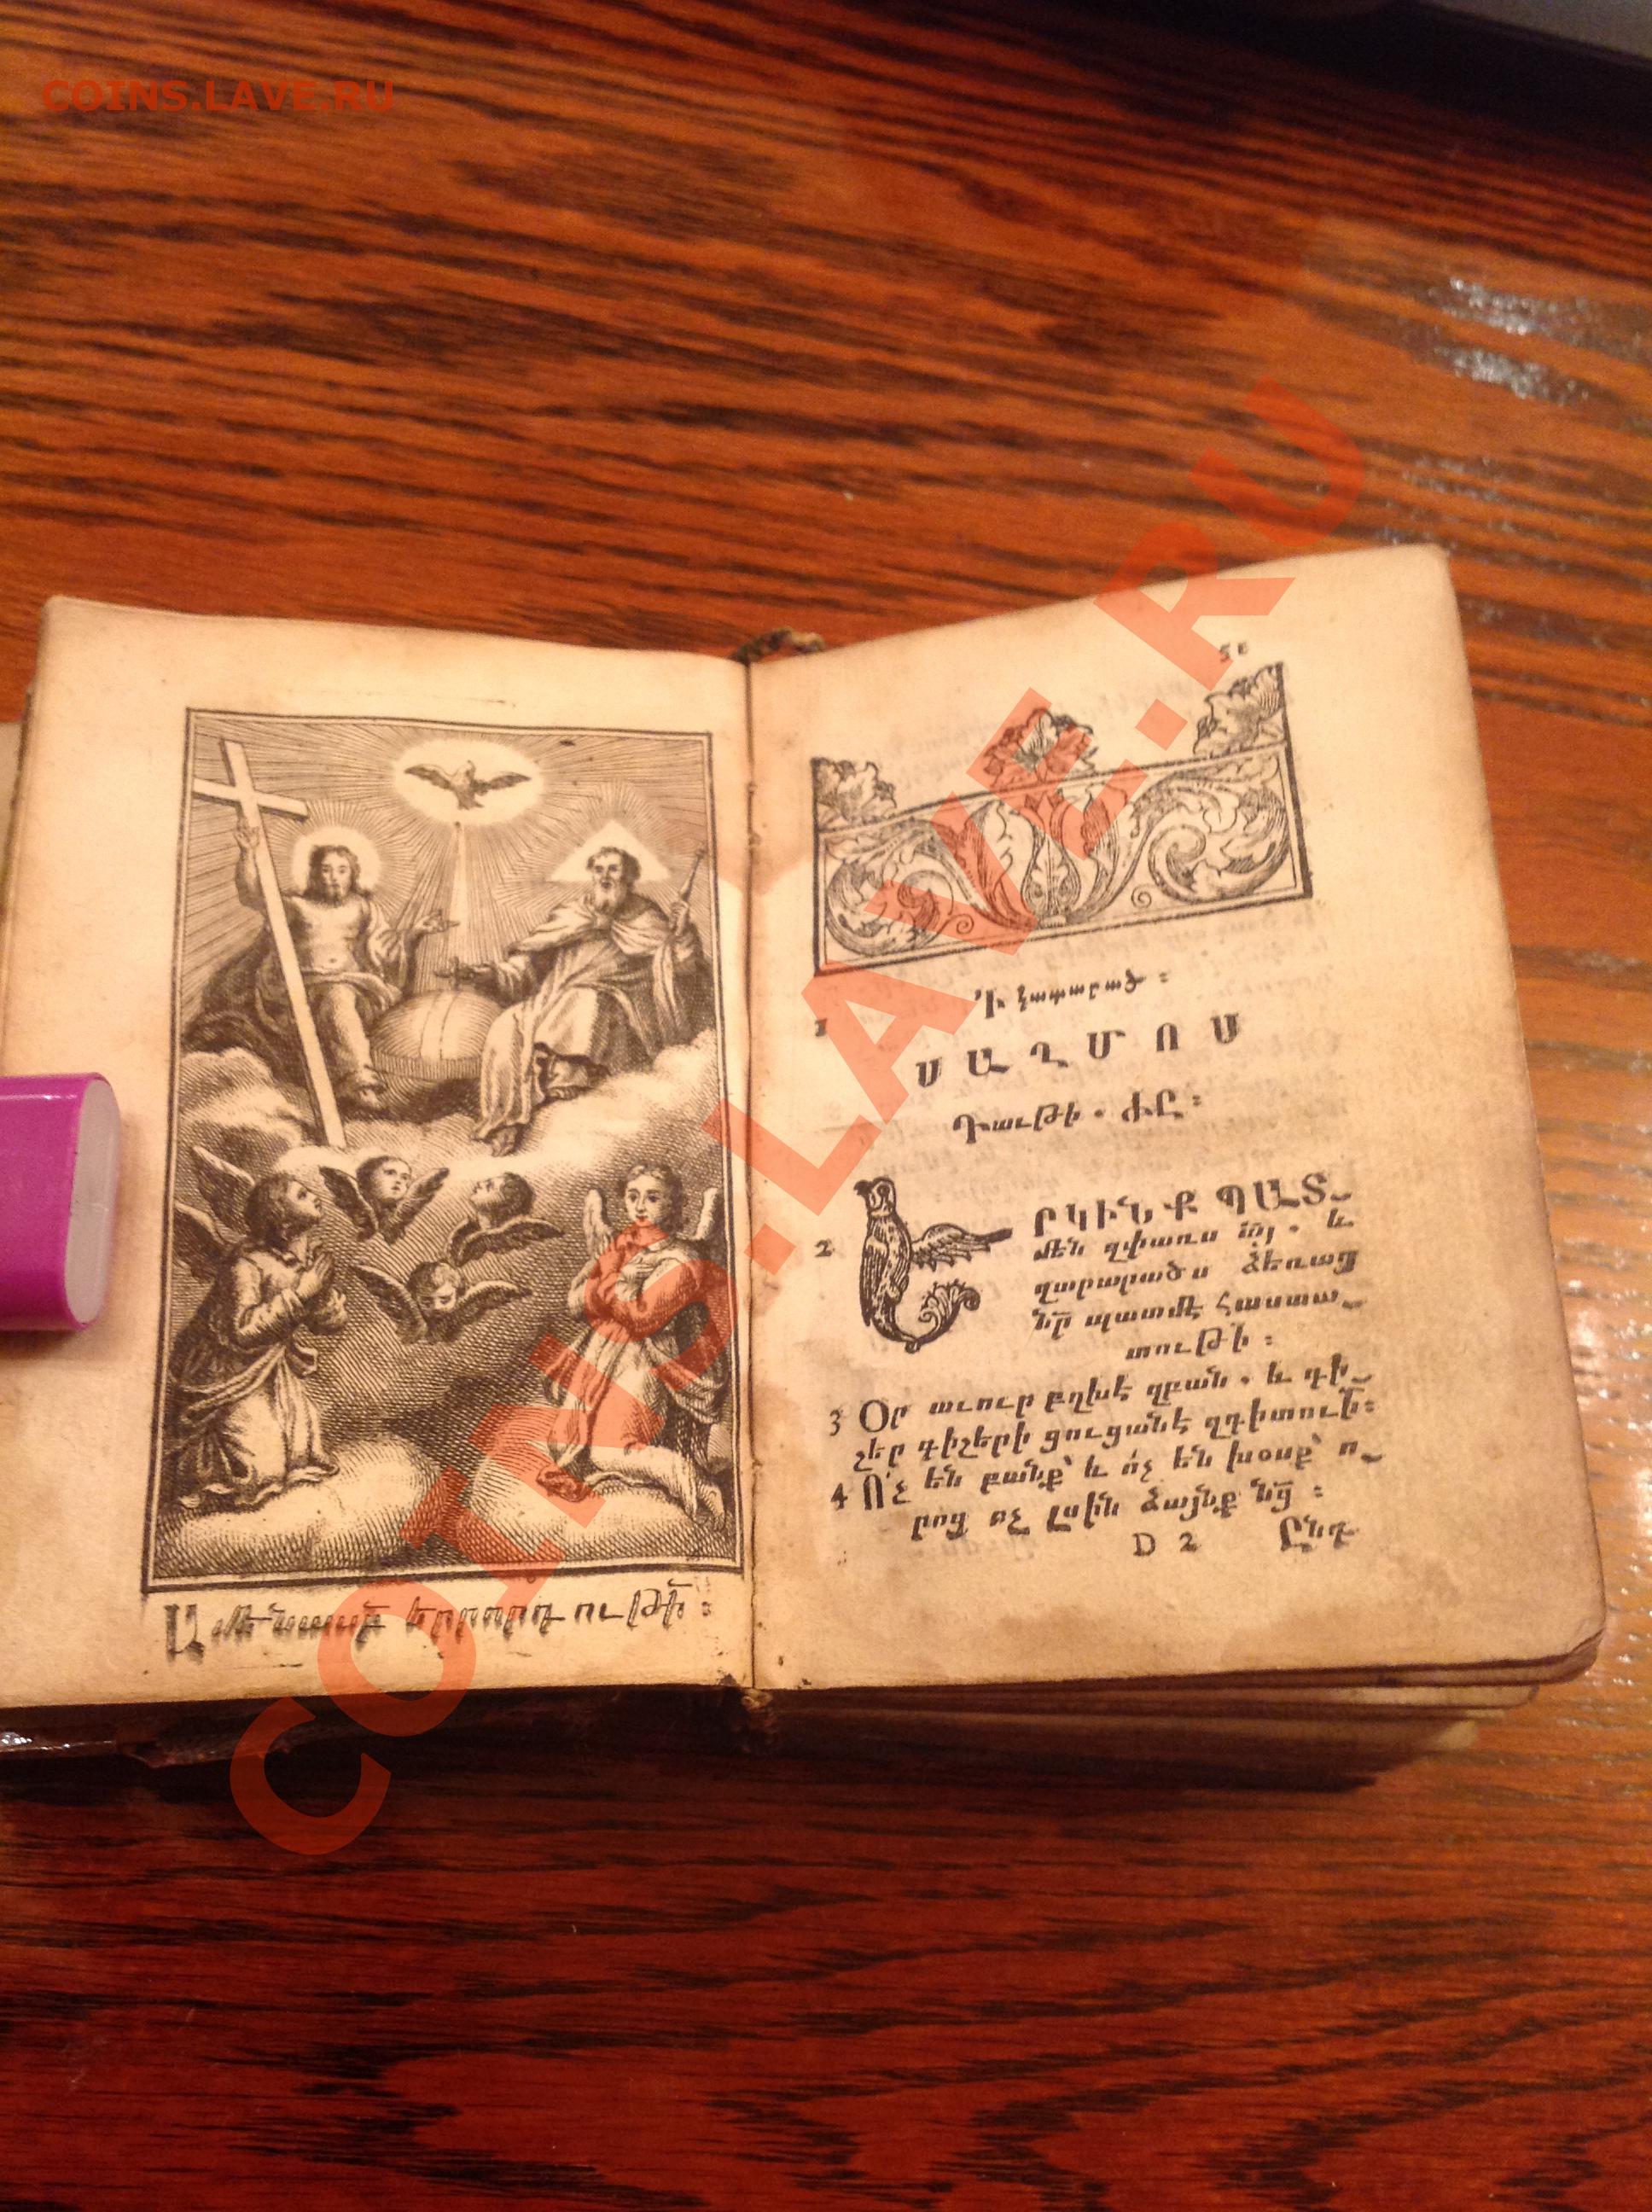 COINS.LAVE.RU
Ամենասբ երրորդութի՛ ։
51
1 Ի կատարած ։
ՍԱՂՄՈՍ
Դաւթի . ԺԸ ։
2 ԵՐԿԻՆՔ ՊԱՏ֊
մեն զփառս այ . և
զարարածս ձեռաց
նր պատմէ հաստա֊
տութի ։
3 Օր աւուր բղխէ զբան . և գի֊
շեր գիշերի ցուցանէ զգիտուի ։
4 Ո՛չ են բանք՝ և ո՛չ են խօսք՝ ո֊
րոց ոչ լսին ձայնք նց ։
D 2 Ընդ
COINS.LAVE.RU